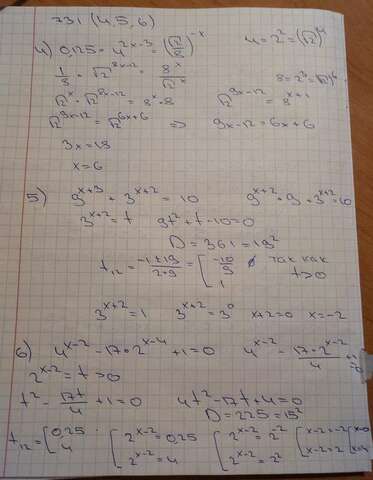 731 (4,5,6)
4) 0,125 · 4^{2x-3} = (√2/8)^{-x}   4 = 2² = (√2)⁴
1/8 · √2^{8x-12} = 8^x/√2^x   8 = 2³ = √2⁶
√2^x · √2^{8x-12} = 8^x · 8   √2^{9x-12} = 8^{x+1}
√2^{9x-12} = √2^{6x+6} ⇒ 9x-12 = 6x+6
3x = 18
x = 6
5) 9^{x+3} + 3^{x+2} = 10   9^{x+2} · 9 + 3^{x+2} = 10
3^{x+2} = t   9t² + t - 10 = 0
D = 361 = 19²
t₁₂ = (-1 ± 19)/(2·9) = [ -10/9 ∅ так как
1   t>0
3^{x+2} = 1   3^{x+2} = 3⁰   x+2 = 0   x = -2
6) 4^{x-2} - 17 · 2^{x-4} + 1 = 0   4^{x-2} - (17 · 2^{x-2})/4 + 1 = 0
2^{x-2} = t > 0
t² - 17t/4 + 1 = 0   4t² - 17t + 4 = 0
D = 225 = 15²
t₁₂ = [ 0,25   [ 2^{x-2} = 0,25   [ 2^{x-2} = 2^{-2}   [ x-2 = -2   [ x=0
4   2^{x-2} = 4   2^{x-2} = 2²   x-2 = 2   x=4